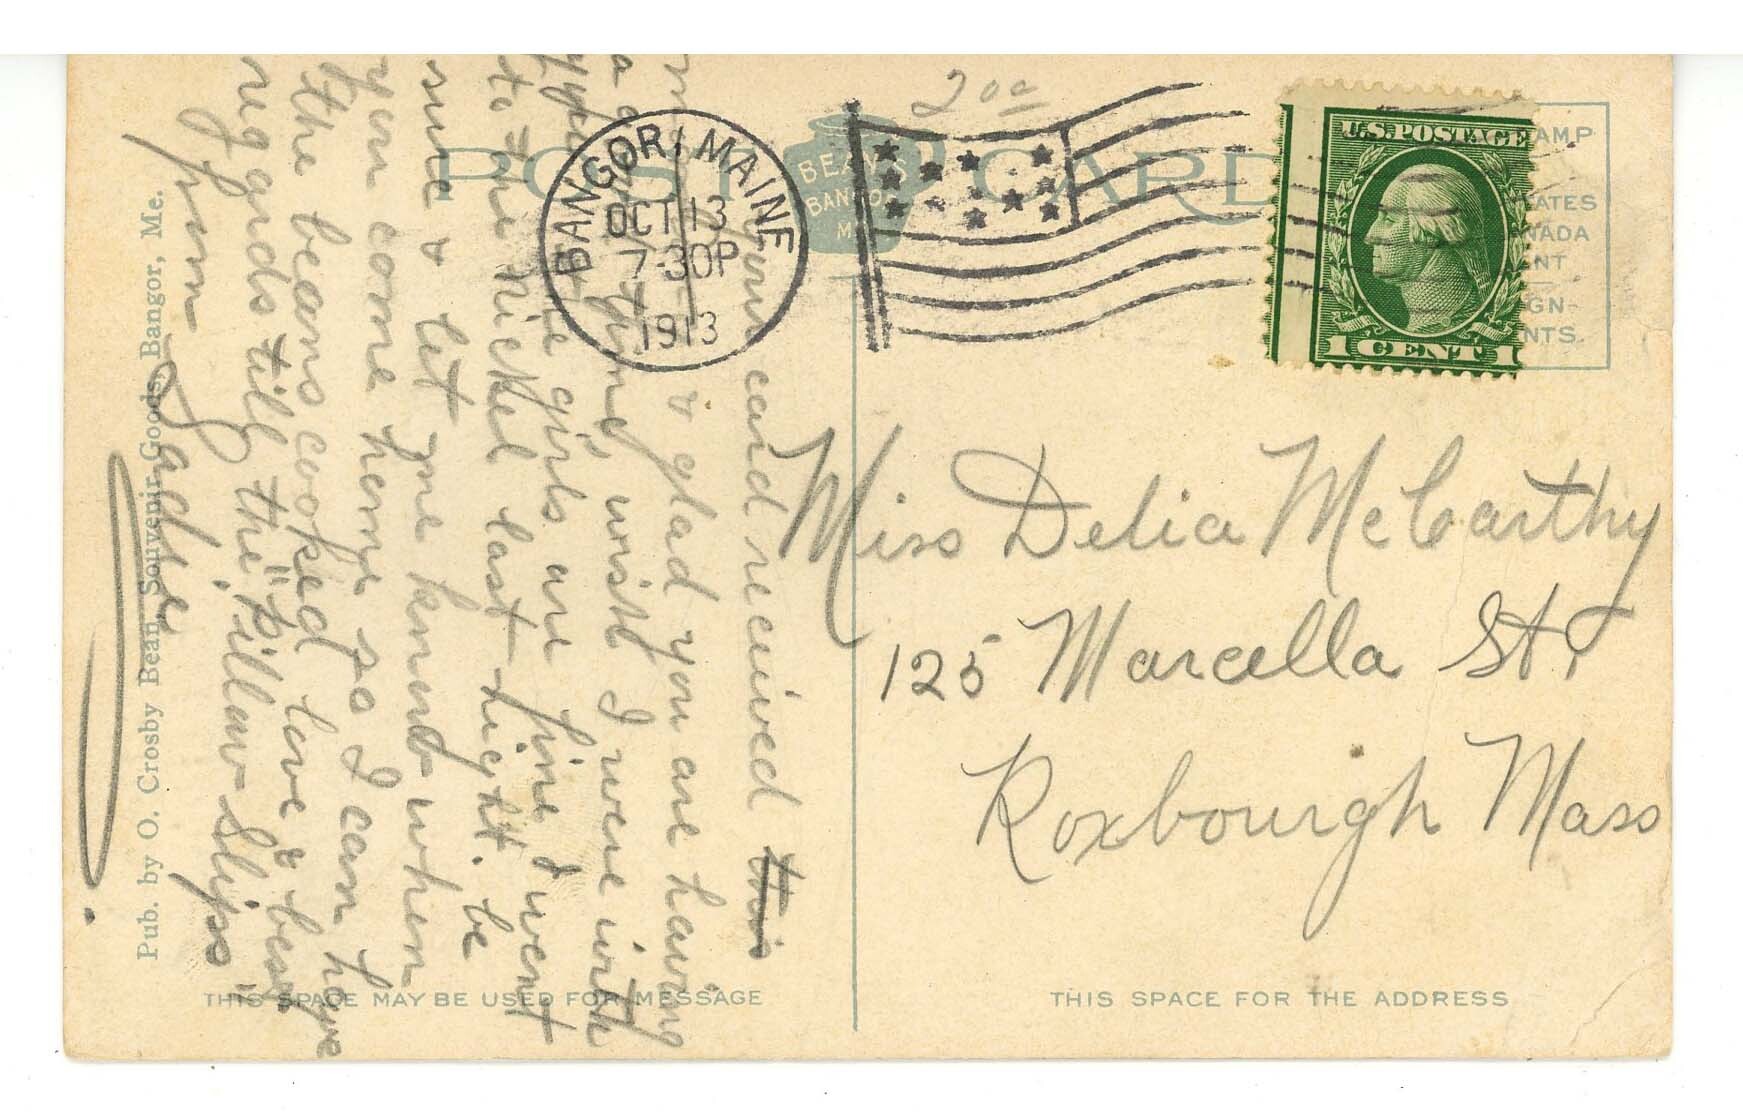 POST CARD
BEAN'S
BANGOR
ME
200
BANGOR, MAINE
OCT 13
7-30P
1913
U.S. POSTAGE
1 CENT 1
Miss Delia McCarthy
125 Marcella St.
Roxbourigh Mass
Your card received this
& glad you are having
a good time, wish I were with
you. The girls are fine I went
to the nickel last night. be
sure & let me know when
you come home so I can have
the beans cooked love & best
regards till the "Pillow-Slips"
from Sadie.
Pub. by O. Crosby Bean, Souvenir Goods, Bangor, Me.
THIS SPACE MAY BE USED FOR MESSAGE
THIS SPACE FOR THE ADDRESS